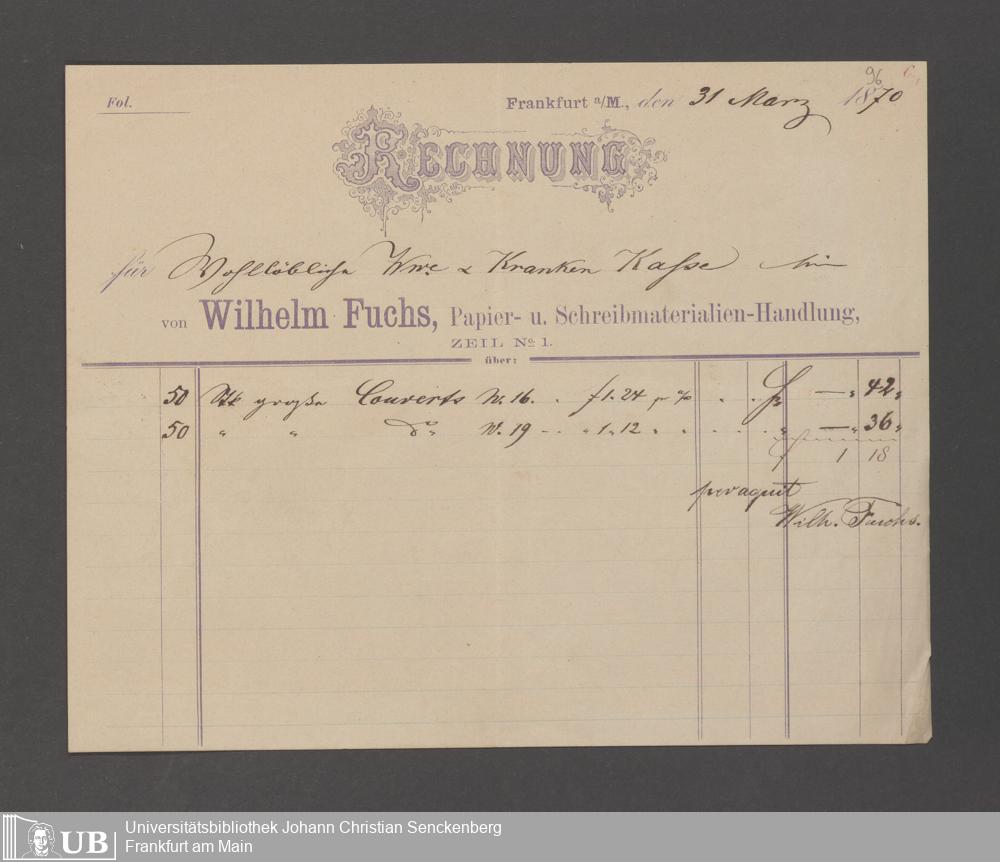 96
Fol.
Frankfurt a/M., den 31 Marz 1870
RECHNUNG
für Wohllöbliche Wwe & Kranken Kasse hier
von Wilhelm Fuchs, Papier- u. Schreibmaterialien-Handlung,
ZEIL No 1.
über:
50 Stk große Couverts N. 16. . f 1.24 pr % . . f — „ 42 „
50 „ „ do „ N. 19 — . „ 1 „ 12 „ „ . . . „ — „ 36 „
f 1 18
per aquit
Wilh. Fuchs.
UB
Universitätsbibliothek Johann Christian Senckenberg
Frankfurt am Main